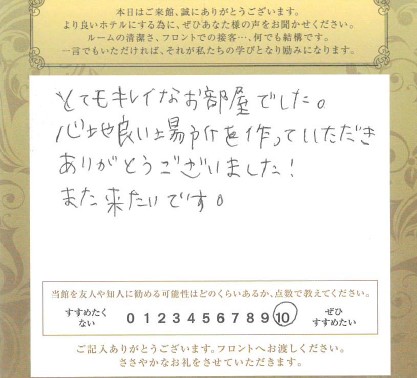 本日はご来館、誠にありがとうございます。
より良いホテルにする為に、ぜひあなた様の声をお聞かせください。
ルームの清潔さ、フロントでの接客…、何でも結構です。
一言でもいただければ、それが私たちの学びとなり励みになります。
とてもキレイなお部屋でした。
心地良い場所を作っていただき
ありがとうございました!
また来たいです。
当館を友人や知人に勧める可能性はどのくらいあるか、点数で教えてください。
すすめたくない 0 1 2 3 4 5 6 7 8 9 10 ぜひすすめたい
ご記入ありがとうございます。フロントへお渡しください。
ささやかなお礼をさせていただきます。